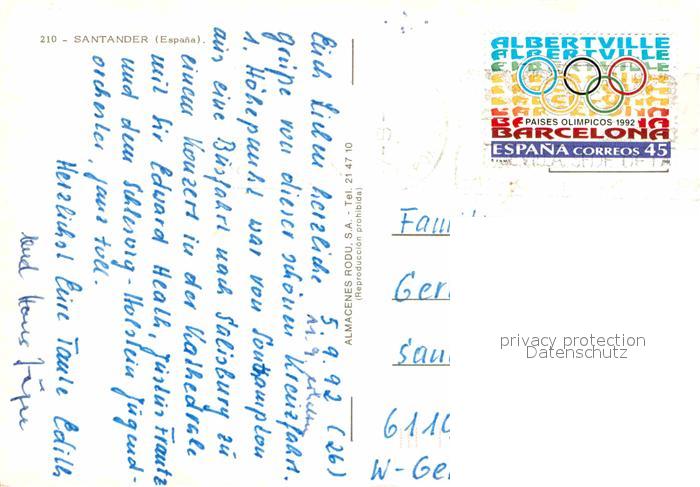 210 - SANTANDER (España).
5.9.92 (26)
Euch Lieben herzliche
Grüße von dieser schönen Kreuzfahrt.
1. Höhepunkt war von Southampton
aus eine Busfahrt nach Salisbury zu
einem Konzert in der Kathedrale
mit Sir Edward Heath, Justus Frantz
und dem Schleswig-Holstein Jugend-
orchester, ganz toll.
Herzlichst Eure Tante Edith
und Hans
ALMACENES RODU, S.A. - Tel. 21 47 10
(Reproducción prohibida)
ALBERTVILLE
ALBERTVILLE
PAISES OLIMPICOS 1992
BARCELONA
ESPAÑA CORREOS 45
Fam
Ger
San
611
W-Ge
privacy protection
Datenschutz